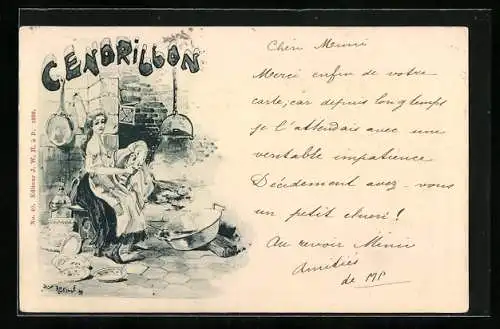 CENDRILLON
No. 40. Editeur J. W., H. à P. 1899.
Chère Mimi
Merci enfin de votre
carte, car depuis longtemps
je l'attendais avec une
veritable impatience
Décidement avez-vous
un petit cheri!
Au revoir Mimi
Amitiés
de MP